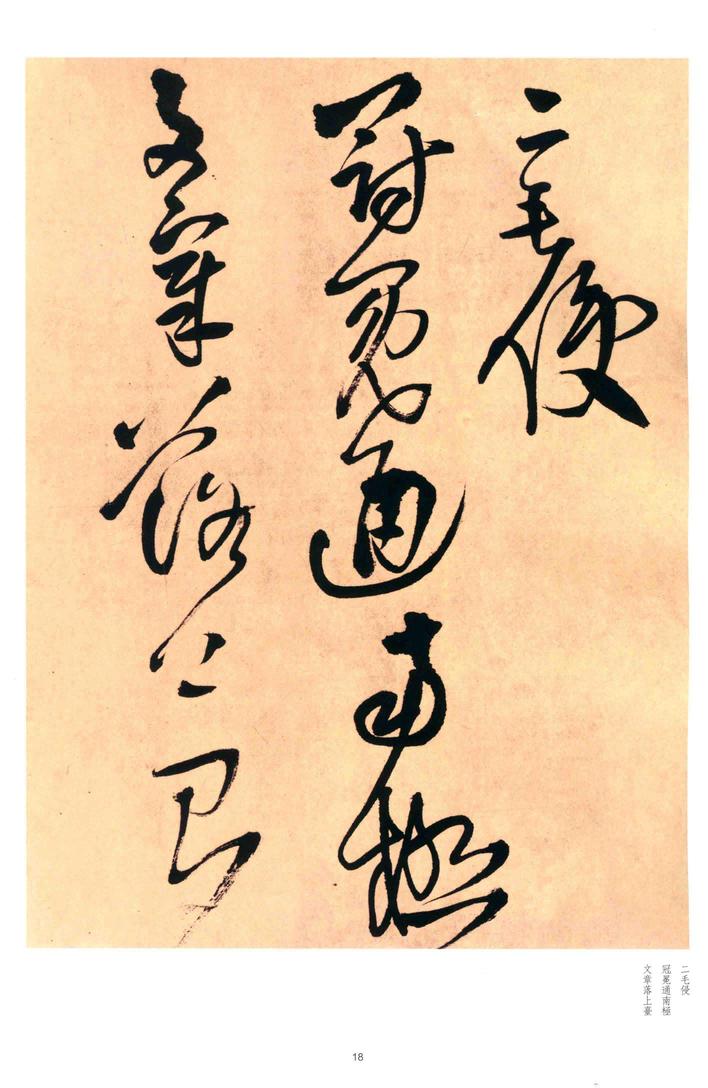 二毛侵
冠冕通南極
文章落上臺
二毛侵
冠冕通南極
文章落上臺
18